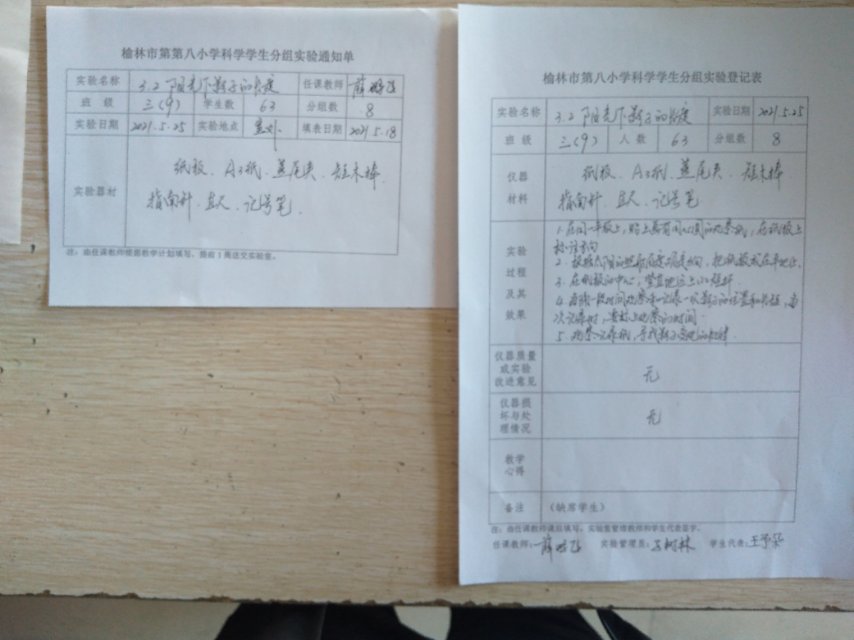 榆林市第第八小学科学学生分组实验通知单
实验名称 3.2 阳光下影子的长度 任课教师 薛
班 级 三(9) 学生数 63 分组数 8
实验日期 2021.5.25 实验地点 填表日期 2021.5.18
实验器材
纸板、A3纸、燕尾夹、短木棒
指南针、直尺、记号笔
注:由任课教师根据教学计划填写,提前1周送交实验室。
榆林市第八小学科学学生分组实验登记表
实验名称 3.2 阳光下影子的长度 实验日期 2021.5.25
班 级 三(9) 人 数 63 分组数 8
仪器材料
纸板、A3纸、燕尾夹、短木棒
指南针、直尺、记号笔
实验过程及其效果
1.在同一平板上,贴上画有同心圆的记录纸,在纸板上
标注方向
2.
3.在纸板的中心,竖直地
4.每隔一段时间观察和记录一次影子的位置和长短,每
次记录时,要标上观察的时间
5.观察记录纸,寻找影子变化的规律
仪器质量或实验改进意见 无
仪器损坏与处理情况 无
教学心得
备注 (缺席学生)
注:由任课教师课后填写,实验室管理教师和学生代表签字。
任课教师:薛 实验管理员: 树林 学生代表:王予